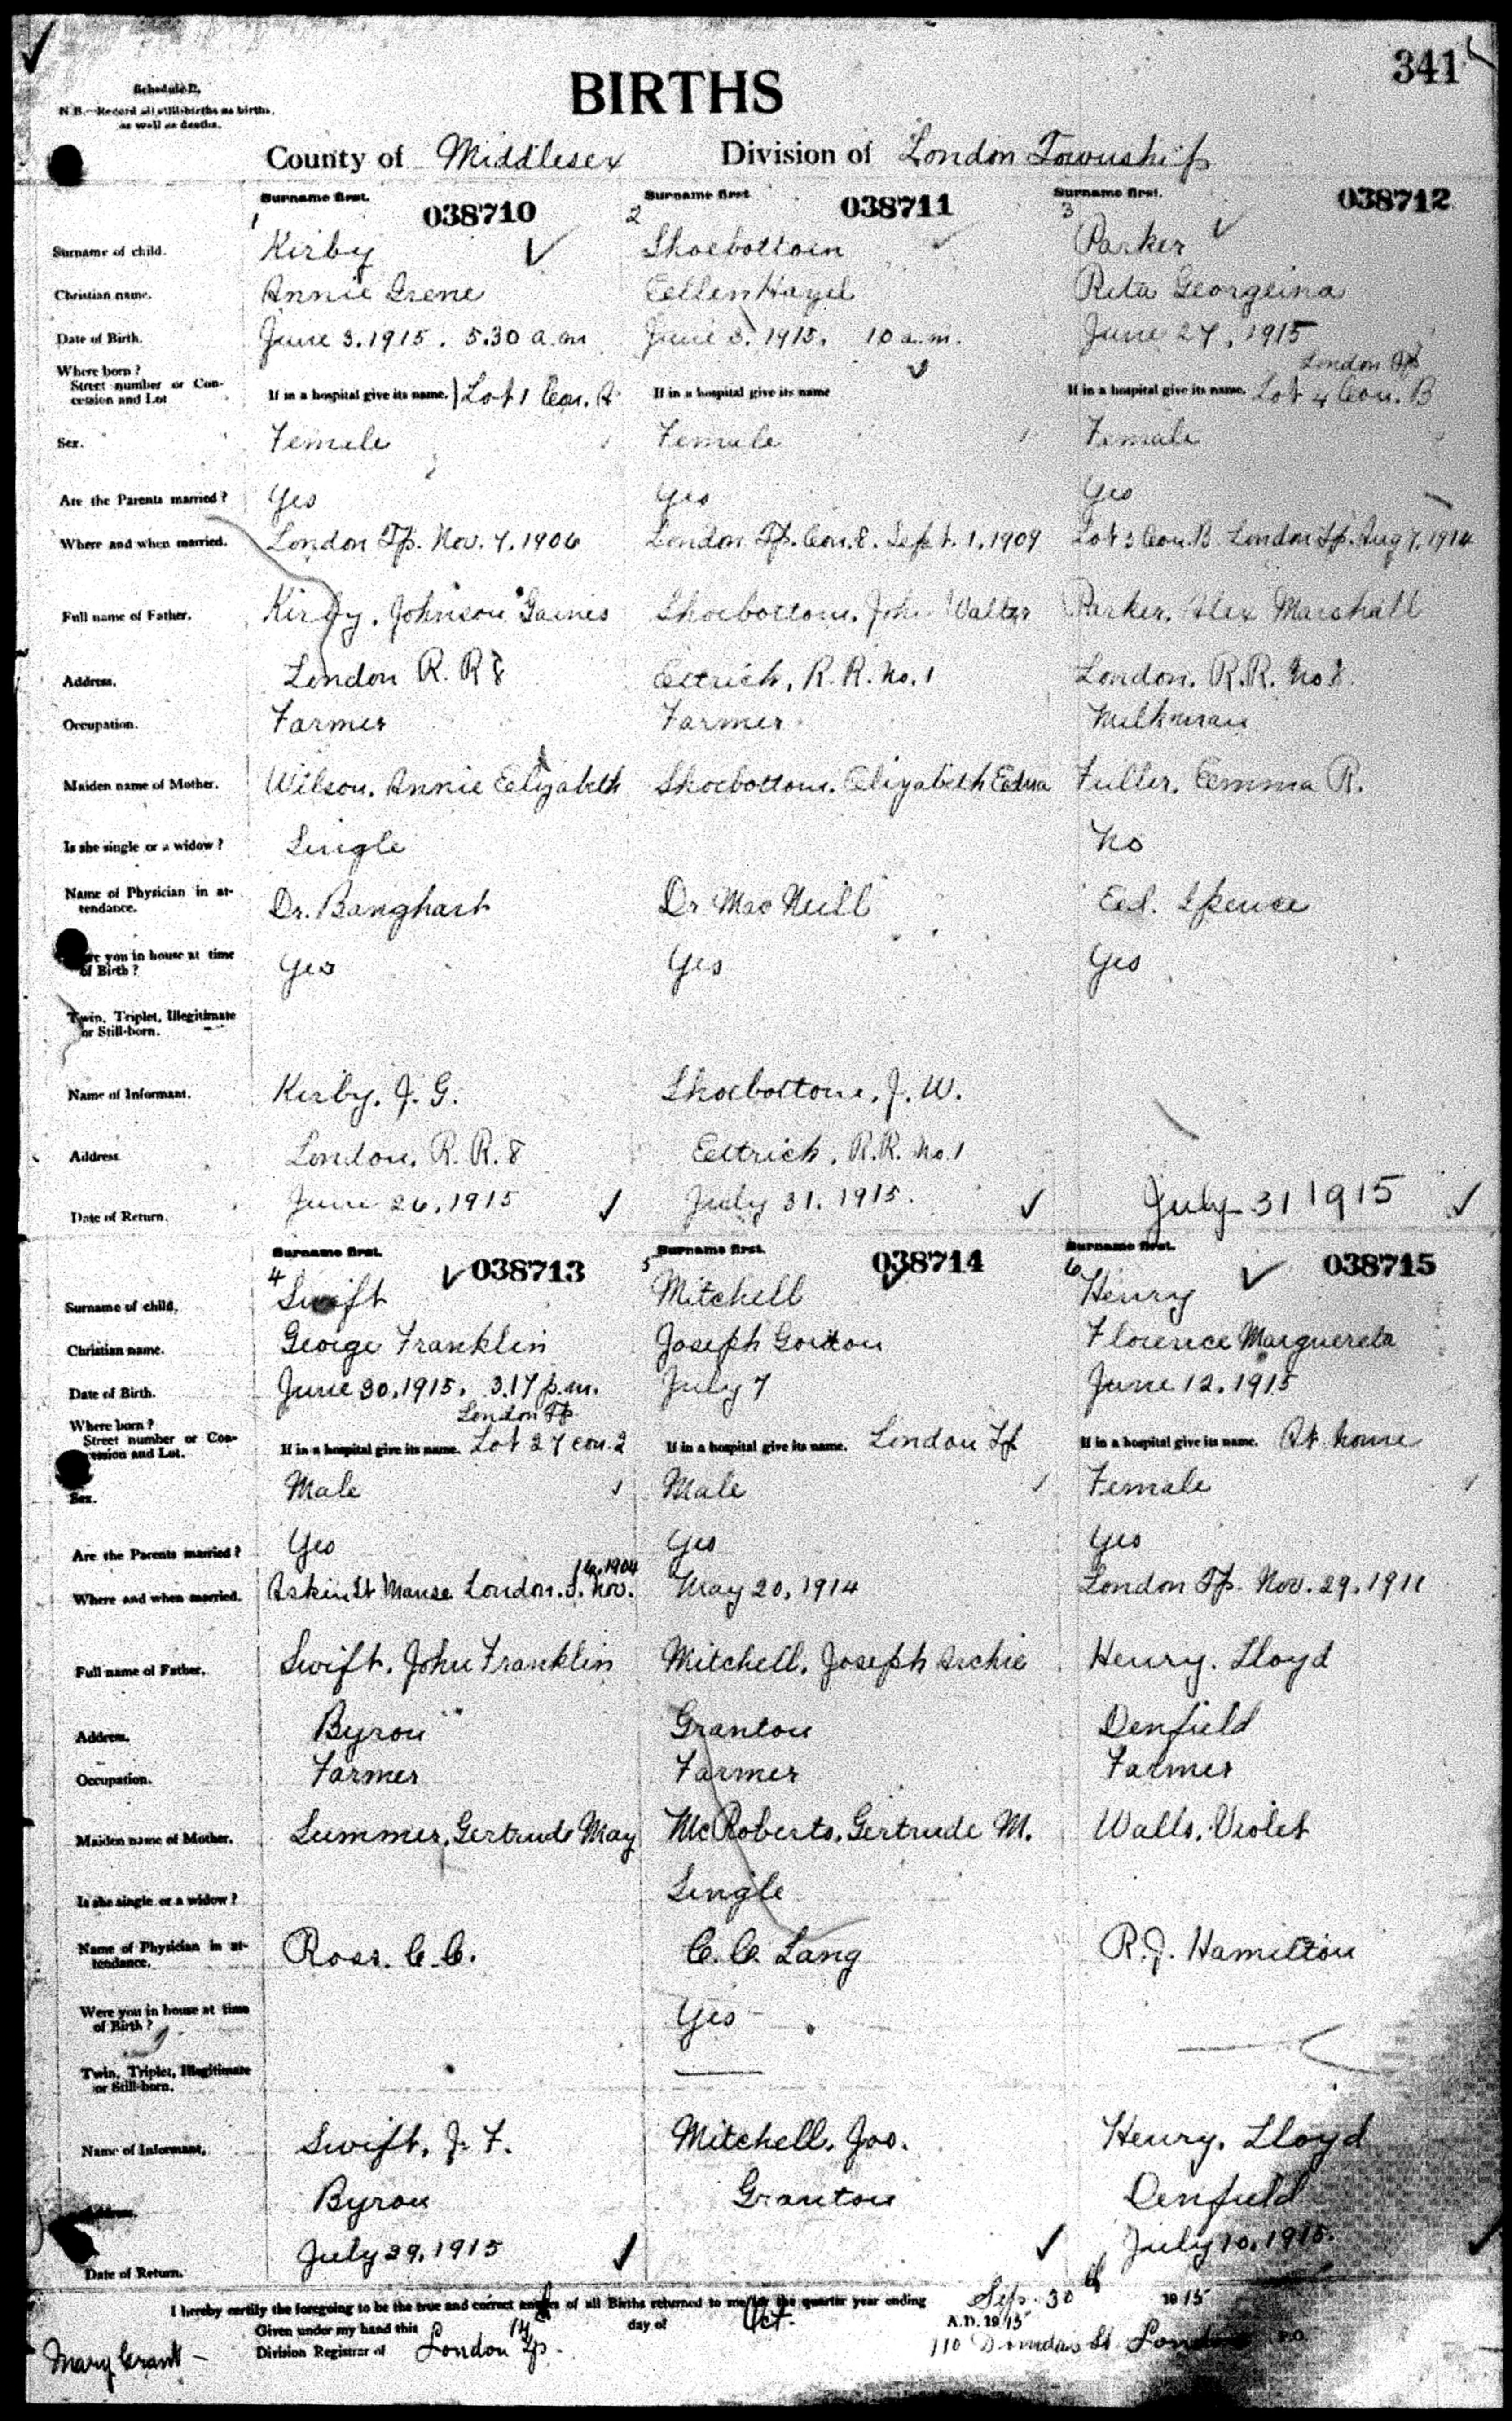 341
Schedule B.
BIRTHS
N.B.—Record all still-births as births,
as well as deaths.
County of Middlesex Division of London Township
Surname first. 038710 Surname first. 038711 Surname first. 038712
1 2 3
Surname of child. Kirby Shoebottom Parker
Christian name. Annie Irene Eellen Hazel Reta Georgeina
Date of Birth. June 3. 1915. 5.30 a.m June 3. 1915. 10 a.m. June 27, 1915
Where born? London Tp
Street number or Con-
cession and Lot If in a hospital give its name. Lot 1 Con. A If in a hospital give its name If in a hospital give its name. Lot 4 Con. B
Sex. Female Female Female
Are the Parents married? Yes Yes Yes
Where and when married. London Tp. Nov. 7, 1906 London Tp. Con. 8. Sept. 1, 1909 Lot 3 Con. B London Tp. Aug 7, 1914
Full name of Father. Kirby, Johnson Gaines Shoebottom, John Walter Parker, Alex Marshall
Address. London R. R 8 Ettrick, R. R. No. 1 London, R.R. No 8.
Occupation. Farmer Farmer Milkman
Maiden name of Mother. Wilson, Annie Eelizabeth Shoebottom, Elizabeth Edna Fuller, Emma R.
Is she single or a widow? Single No
Name of Physician in at-
tendance. Dr. Banghart Dr MacNeill Ed. Spence
Were you in house at time
of Birth? Yes Yes Yes
Twin, Triplet, Illegitimate
or Still-born.
Name of Informant. Kirby, J. G. Shoebottom, J. W.
Address London, R. R. 8 Ettrick, R.R. No. 1
Date of Return. June 26, 1915 July 31, 1915. July 31 1915
Surname first. 038713 Surname first. 038714 Surname first. 038715
4 5 6
Surname of child. Swift Mitchell Henry
Christian name. George Franklin Joseph Gordon Florence Marguereta
Date of Birth. June 30, 1915. 3.17 p.m. July 7 June 12, 1915
Where born? London Tp
Street number or Con-
cession and Lot. If in a hospital give its name. Lot 27 con. 2 If in a hospital give its name. London Tp If in a hospital give its name. At home
Sex. Male Male Female
Are the Parents married? Yes Yes Yes
16, 1904
Where and when married. Askin St Manse London. S. Nov. May 20, 1914 London Tp. Nov. 29, 1911
Full name of Father. Swift, John Franklin Mitchell, Joseph Archie Henry, Lloyd
Address. Byron Granton Denfield
Occupation. Farmer Farmer Farmer
Maiden name of Mother. Summer, Gertrude May McRoberts, Gertrude M. Walls, Violet
Is she single or a widow? Single
Name of Physician in at-
tendance. Ross. C. C. C. C. Lang R. J. Hamilton
Were you in house at time
of Birth? Yes
Twin, Triplet, Illegitimate
or Still-born.
Name of Informant. Swift, J. F. Mitchell, Jos. Henry, Lloyd
Address. Byron Granton Denfield
Date of Return. July 29, 1915 July 10, 1915.
I hereby certify the foregoing to be the true and correct entries of all Births returned to me for the quarter year ending Sep. 30th 1915
Given under my hand this 14 day of Oct. A.D. 1915
Mary Grant Division Registrar of London Tp. 110 Dundas St London P.O.